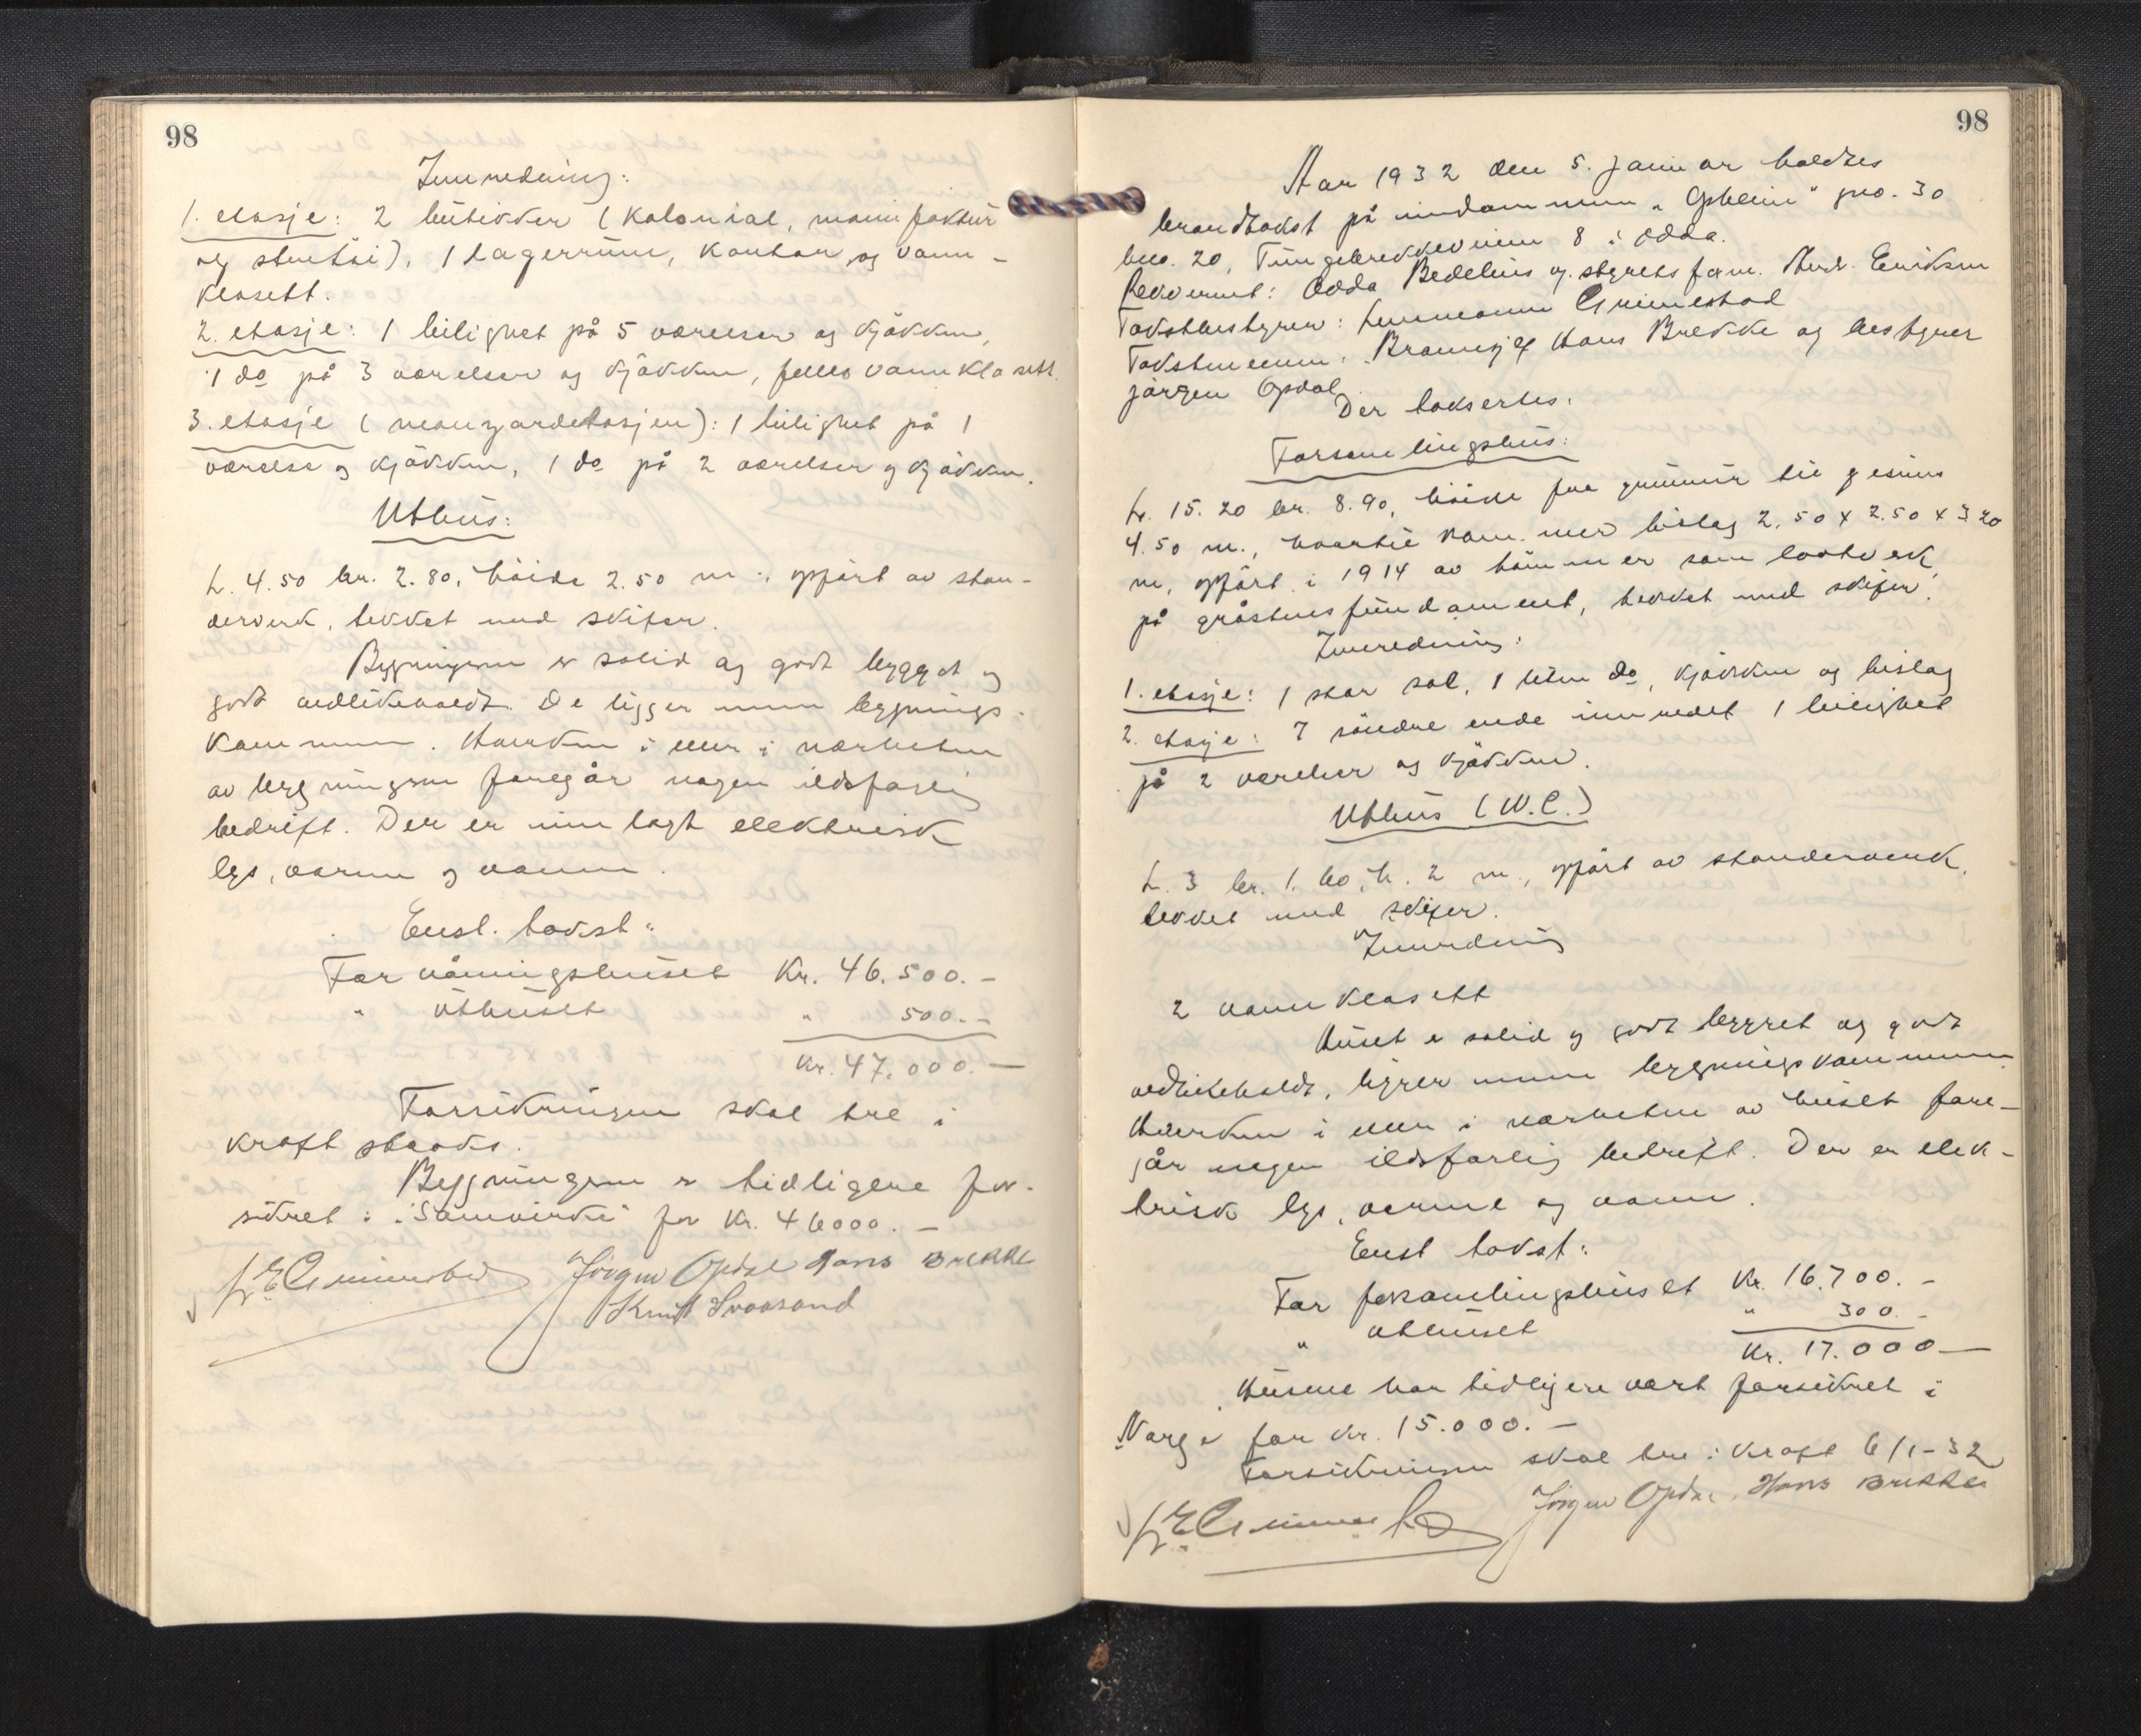 98
Innredning:
1. etasje: 2 butikker (kolonial, manufaktur
og stentøi), 1 lagerrum, kontor og vann-
klosett.
2. etasje: 1 leilighet på 5 værelser og kjøkken,
1 do på 3 værelser og kjøkken, felles vannklosett.
3. etasje (mansardetasjen): 1 leilighet på 1
værelse og kjøkken, 1 do på 2 værelser og kjøkken.
Uthus:
L. 4.50 br. 2.80, høide 2.50 m., opført av stan-
derverk, tekket med skifer.
Bygningene er solid og godt bygget og
godt vedlikeholdt. De ligger innen bygnings-
kommunen. Hverken i eller i nærheten
av bygningene foregår nogen ildsfarlig
bedrift. Der er innlagt elektrisk
lys, varme og vann.
Enst. takst:
For våningshuset Kr. 46.500.-
" uthuset " 500.-
Kr. 47.000.-
Forsikringen skal tre i
kraft straks.
Bygningene er tidligere for-
sikret i "Samvirke" for kr. 46000.-
L. E. Grimestad Jørgen Opdal Hans Brekke
Knut Svaasand
98
Aar 1932 den 5. januar holdtes
brandtakst på eiendommen "Opheim" gno. 30
bno. 20, Tungebrekkeveien 8 i Odda.
Rekvirent: Odda Bedehus og. styrets form. Andr. Eriksen
Takstbestyrer: lensmann Grimestad
Takstmenn: Brannsjef Hans Brekke og bestyrer
Jørgen Opdal.
Der taksertes:
Forsamlingshus:
L. 15.20 br. 8.90, høide fra grunnmur til gesims
4.50 m., hvortil kom. mer bislag 2.50 x 2.50 x 3.20
m, opført i 1914 av tømmer som lafteverk,
på gråstensfundament, tekket med skifer.
Innredning:
1. etasje: 1 stor sal, 1 liten do, kjøkken og bislag
2. etasje: I søndre ende innredet 1 leilighet
på 2 værelser og kjøkken.
Uthus (W.C.)
L. 3 br. 1.60, h. 2 m., opført av standerverk,
tekket med skifer.
Innredning
2 vannklosett
Huset er solid og godt bygget og godt
vedlikeholdt, ligger innen bygningskommunen.
Hverken i eller i nærheten av huset fore-
går nogen ildsfarlig bedrift. Der er elek-
trisk lys, varme og vann.
Enst takst:
For forsamlingshuset Kr. 16.700.-
" uthuset " 300.-
Kr. 17.000-
Husene har tidligere vært forsikret i
Norge for kr. 15.000.-
Forsikringen skal tre i kraft 6/1-32
L. E. Grimestad Jørgen Opdal, Hans Brekke